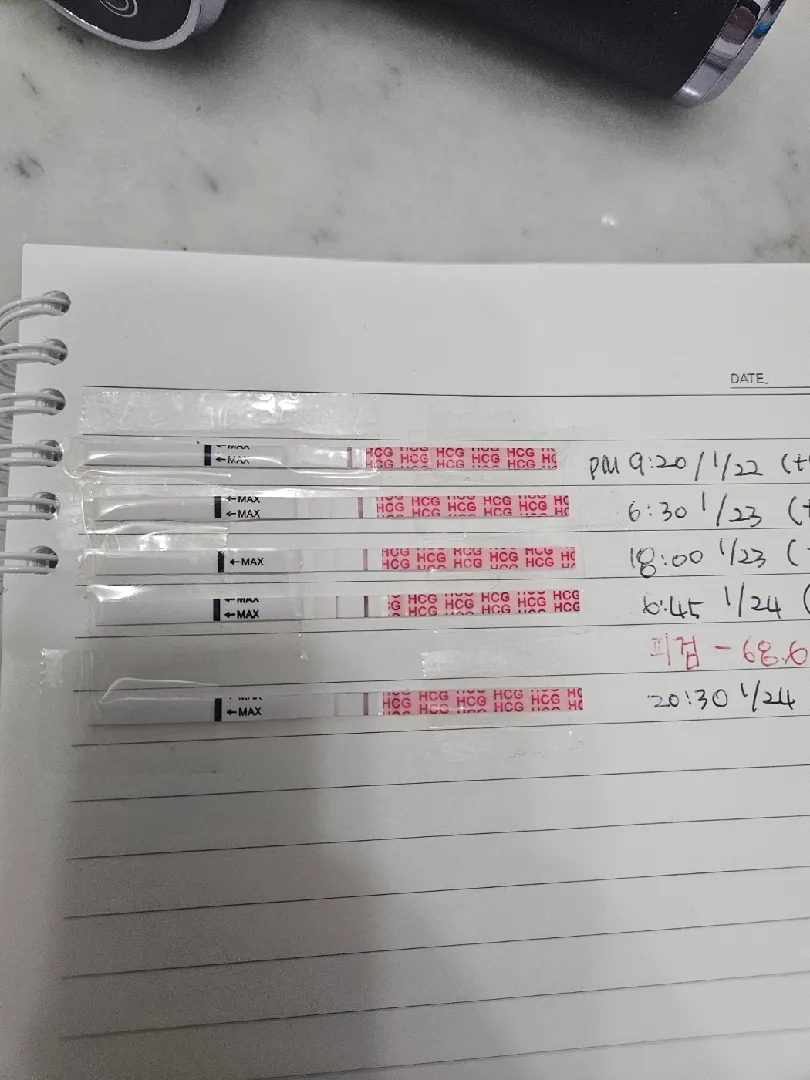 DATE.
←MAX
←MAX
HCG HCG HCG HCG HCG
HCG HCG HCG HCG
PM 9:20/1/22 (+
←MAX
←MAX
HCG HCG HCG HCG HCG
HCG HCG HCG HCG HCG
6:30 1/23 (+
←MAX
HCG HCG HCG HCG HCG
HCG HCG HCG HCG HCG
18:00 1/23 (
←MAX
←MAX
HCG HCG HCG HCG HCG
HCG HCG HCG HCG
6:45 1/24 (
피검 - 68.6
←MAX
HCG HCG HCG HCG HCG
HCG HCG HCG HCG HCG
20:30 1/24